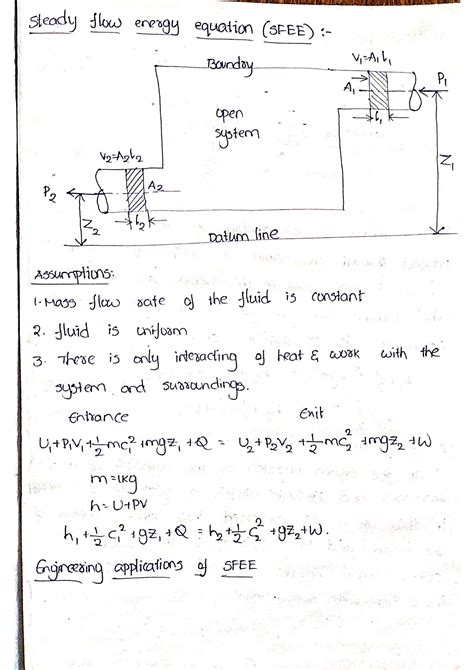 Steady flow energy equation (SFEE) :-
Boundry
V₁=A₁l₁
A₁
P₁
open
system
l₁
Z₁
V₂=A₂l₂
P₂
A₂
Z₂
l₂
Datum line
Assumptions:
1. Mass flow rate of the fluid is constant
2. fluid is uniform
3. There is only interacting of heat & work with the
system and surroundings.
Entrance Exit
U₁+P₁V₁+½mc₁²+mgz₁+Q = U₂+P₂V₂+½mc₂²+mgz₂+W
m=1kg
h=U+PV
h₁+½c₁²+gz₁+Q = h₂+½c₂²+gz₂+W.
Engineering applications of SFEE